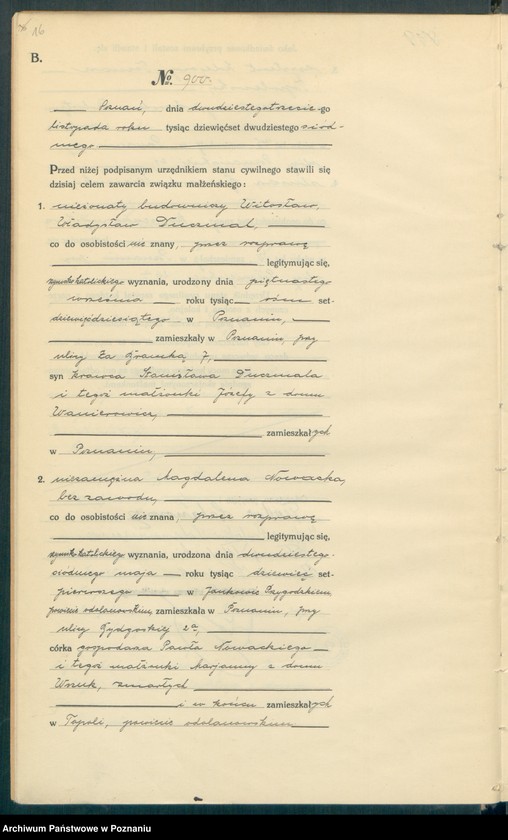 16
B.
No. 900.
Poznań, dnia dwudziestegotrzeciego
listopada roku tysiąc dziewięćset dwudziestego siód-
mego
Przed niżej podpisanym urzędnikiem stanu cywilnego stawili się
dzisiaj celem zawarcia związku małżeńskiego:
1. nieżonaty budowniczy Witosław,
Władysław Duczmal,
co do osobistości nie znany, przez rozprawę
legitymując się,
rzymskokatolickiego wyznania, urodzony dnia piętnastego
września roku tysiąc ośm set-
dziewięćdziesiątego w Poznaniu,
zamieszkały w Poznaniu, przy
ulicy Za Gramką 7,
syn krawca Stanisława Duczmala
i tegoż małżonki Józefy z domu
zamieszkałych
w Poznaniu,
2. niezamężna Magdalena Nowacka,
bez zawodu,
co do osobistości nie znana, przez rozprawę
legitymując się,
rzymskokatolickiego wyznania, urodzona dnia dwudziestego-
siódmego maja roku tysiąc dziewięć set-
pierwszego w Jankowie Przygodzkiem
powiecie odolanowskim, zamieszkała w Poznaniu, przy
ulicy 2a,
córka gospodarza Pawła Nowackiego
i tegoż małżonki Marjanny z domu
zmarłych
i w końcu zamieszkałych
w Topoli, powiecie odolanowskim
Archiwum Państwowe w Poznaniu